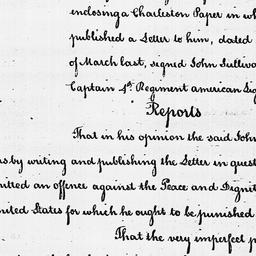 enclosing a Charleston Paper in wh
published a Letter to him, dated
of March last, signed John Sulliva
Captain 4th Regiment american Lig
Reports
That in his opinion the said John
as by writing and publishing the Letter in quest
mitted an offence against the Peace and Dignit
nited States for which he ought to be punished
That the very imperfect p